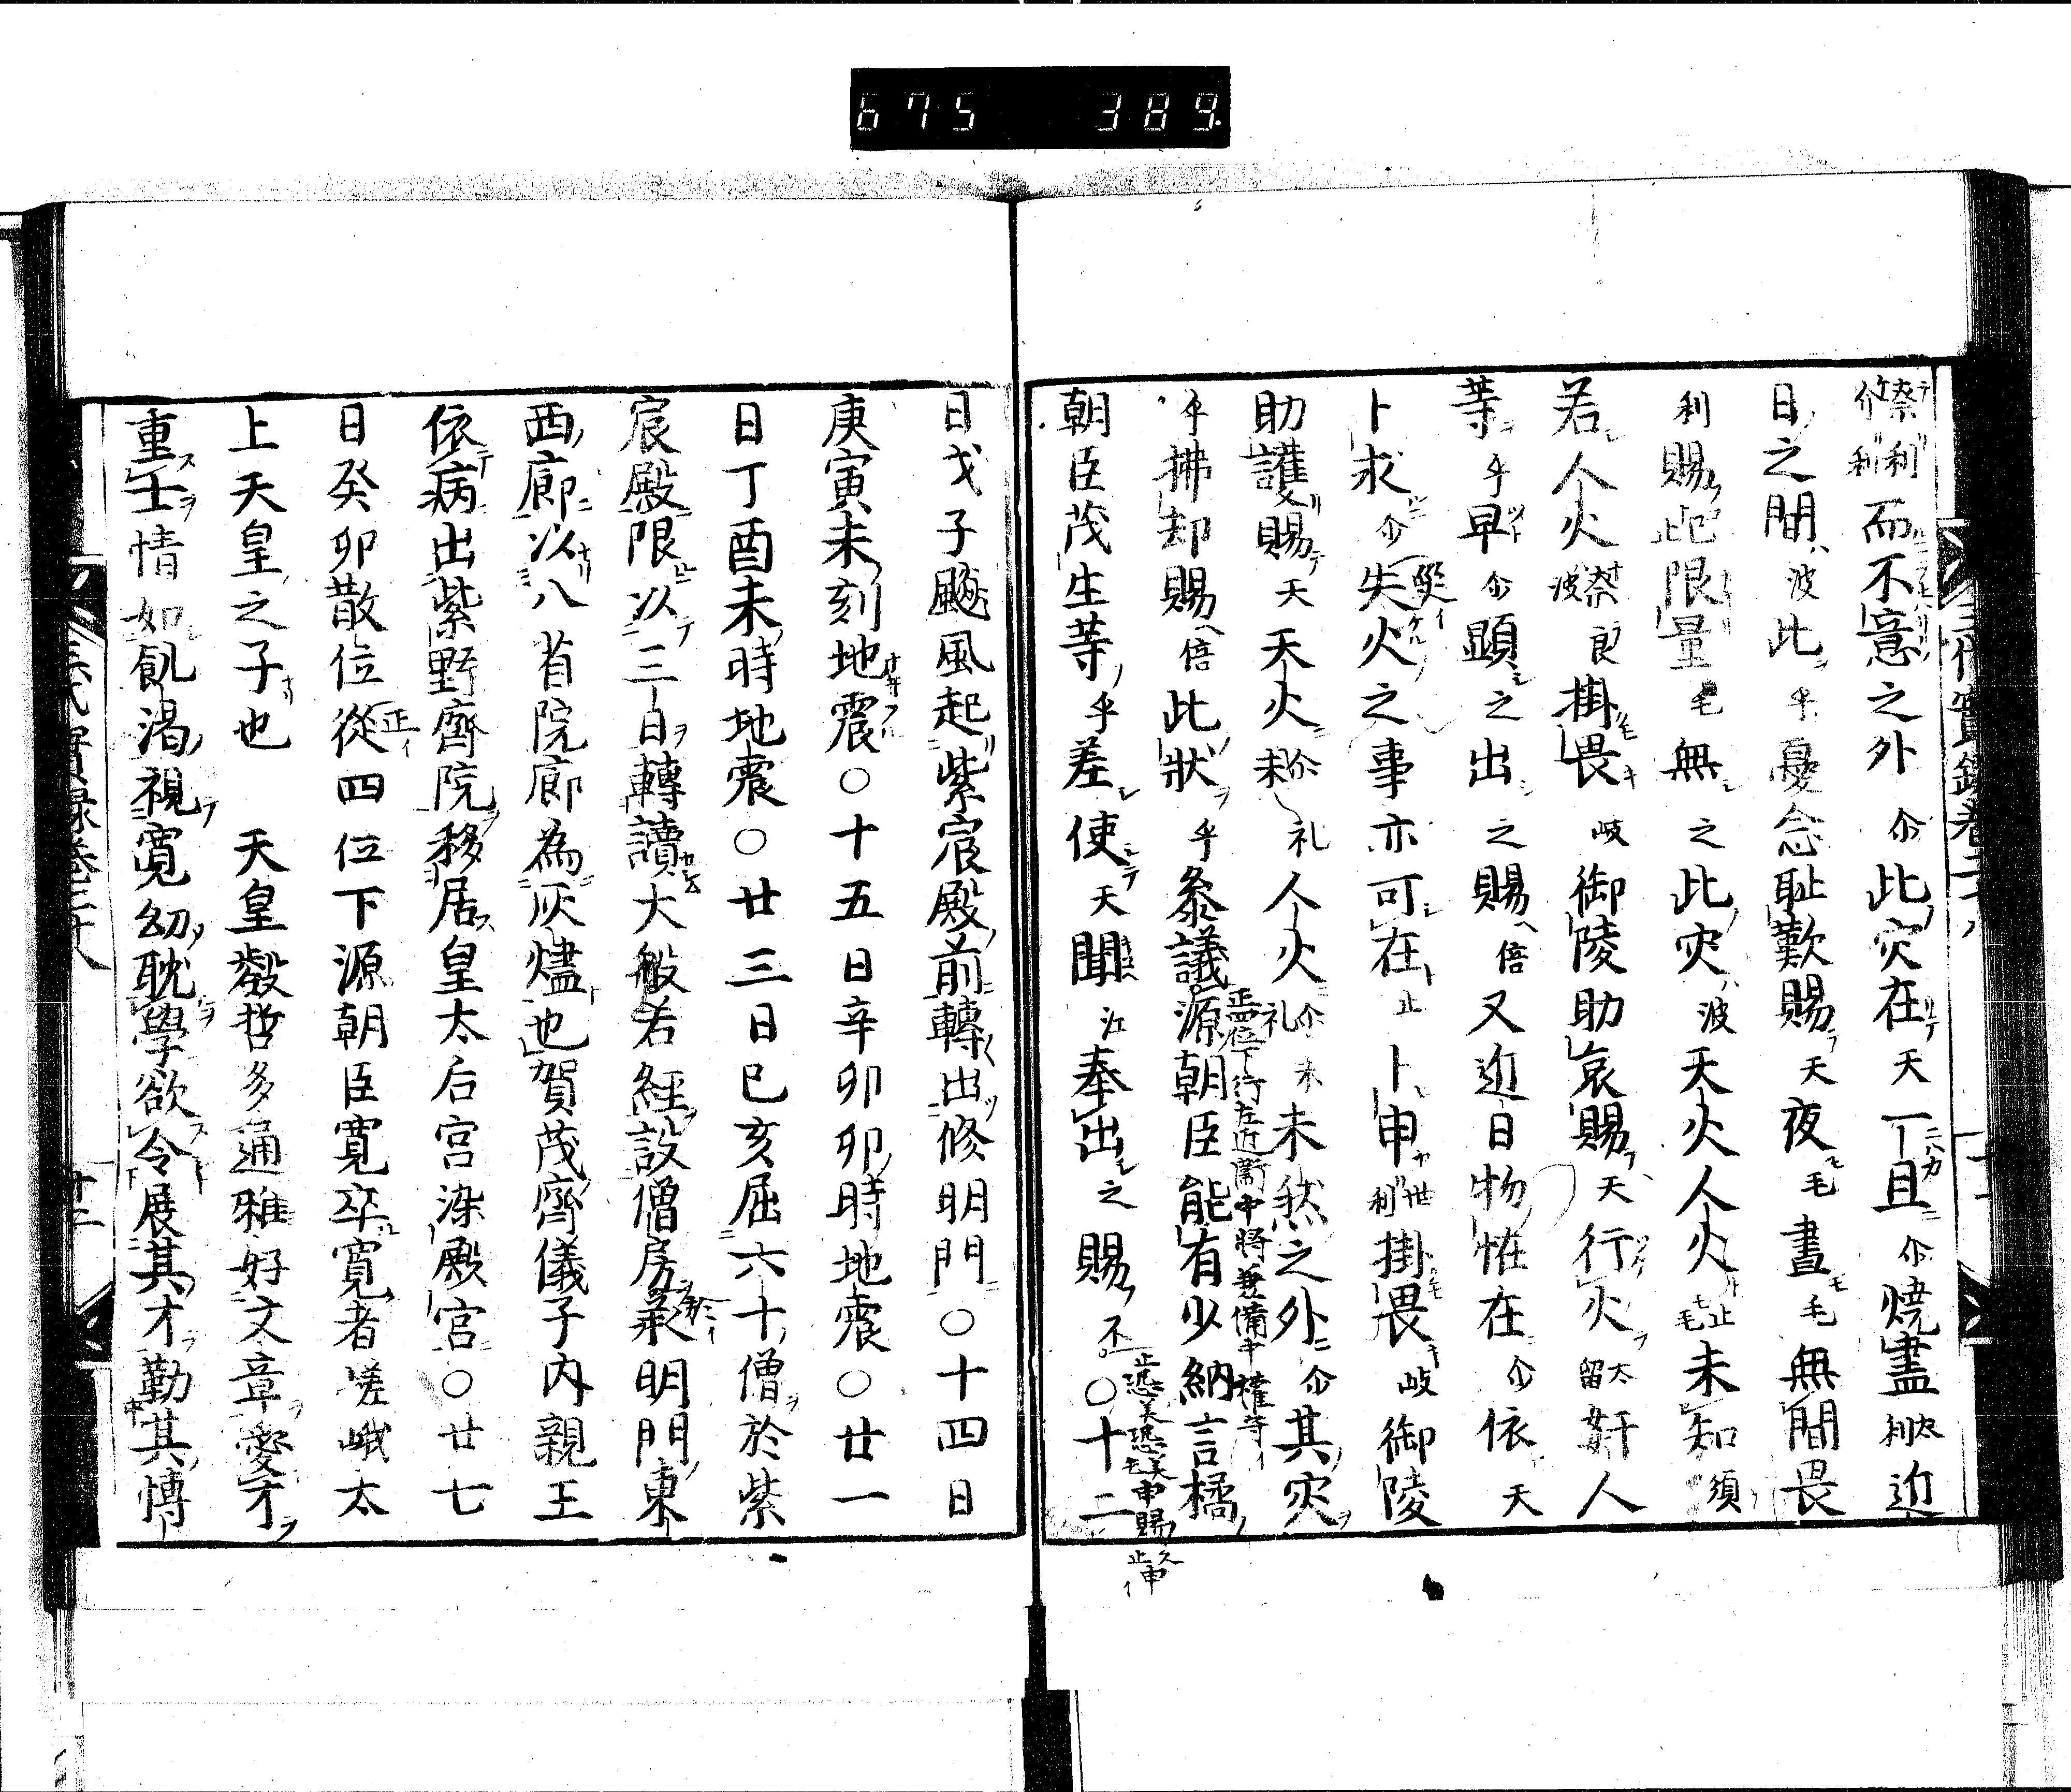 675 389
祭利介利而不意之外尒此灾在天丁且尒燒盡 近
日之間波此乎憂念耻歎賜天夜毛晝毛無間畏
利賜此限量毛無之此灾波天火人火止毛未知須
若人火祭良波掛畏岐御陵助哀賜天行火太留奸人
等乎早尒顕之出之賜倍又近日物恠在尒依天
卜求尒失火之事亦可在止卜申世利掛畏岐御陵
助護賜天天火尒未礼人火尒未礼未然之外尒其灾
乎拂却賜倍此狀乎叅議源朝臣能有少納言橘
正四位下行左近衛中將兼備中權守イ
朝臣茂生等乎差使天聞江奉出之賜不○十二
止恐美恐美毛申賜久止申イ
日戊子飈風起紫宸殿前轉出修明門○十四日
庚寅未刻地震○十五日辛卯卯時地震○廿一
日丁酉未時地震○廿三日己亥屈六十僧於紫
宸殿限以三日轉讀大般若經設僧房承明門東
西廊以八省院廊為灰燼也賀茂齊儀子内親王
依病出紫野齊院移居皇太后宮染殿宮○廿七
日癸卯散位從四位下源朝臣寬卒寬者嵯峨太
上天皇之子也 天皇叡哲多通雅好文章愛才
重士情如飢渇視寬幼耽學欲令展其才勤其博